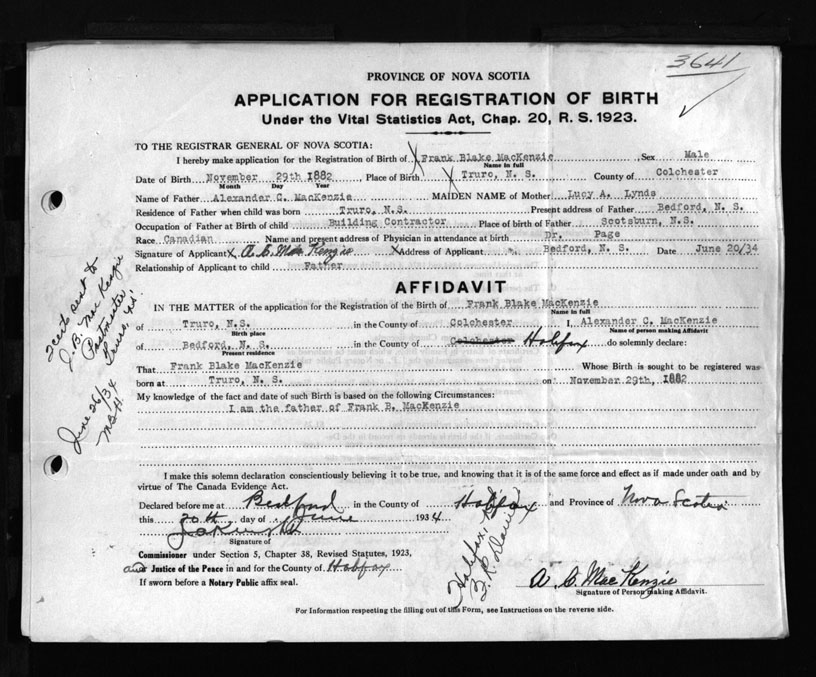 3641
PROVINCE OF NOVA SCOTIA
APPLICATION FOR REGISTRATION OF BIRTH
Under the Vital Statistics Act, Chap. 20, R. S. 1923.
TO THE REGISTRAR GENERAL OF NOVA SCOTIA:
I hereby make application for the Registration of Birth of Frank Blake MacKenzie Sex Male
Name in full
Date of Birth November 29th 1882 Place of Birth Truro, N. S. County of Colchester
Month Day Year
Name of Father Alexander C. MacKenzie MAIDEN NAME of Mother Lucy A. Lynds
Residence of Father when child was born Truro, N.S. Present address of Father Bedford, N. S.
Occupation of Father at Birth of child Building Contractor Place of birth of Father Scotsburn, N.S.
Race Canadian Name and present address of Physician in attendance at birth Dr. Page
Signature of Applicant X A C MacKenzie X Address of Applicant Bedford, N. S. Date June 20/34
Relationship of Applicant to child Father
AFFIDAVIT
IN THE MATTER of the application for the Registration of the Birth of Frank Blake MacKenzie
Name in full
of Truro, N.S. in the County of Colchester I, Alexander C. MacKenzie
Birth place Name of person making Affidavit
of Bedford, N. S. in the County of Colchester Halifax do solemnly declare:
Present residence
That Frank Blake MacKenzie Whose Birth is sought to be registered was
born at Truro, N. S. on November 29th, 1882
My knowledge of the fact and date of such Birth is based on the following Circumstances:
I am the father of Frank B. MacKenzie
I make this solemn declaration conscientiously believing it to be true, and knowing that it is of the same force and effect as if made under oath and by
virtue of The Canada Evidence Act.
Declared before me at Bedford in the County of Halifax and Province of Nova Scotia
this 20th day of June 1934
Signature of
Commissioner under Section 5, Chapter 38, Revised Statutes, 1923,
and Justice of the Peace in and for the County of Halifax
If sworn before a Notary Public affix seal.
A. C. MacKenzie
Signature of Person making Affidavit.
For Information respecting the filling out of this Form, see Instructions on the reverse side.
sent to
J. B. MacKenzie
Postmaster
Truro, NS
June 26/34
Halifax